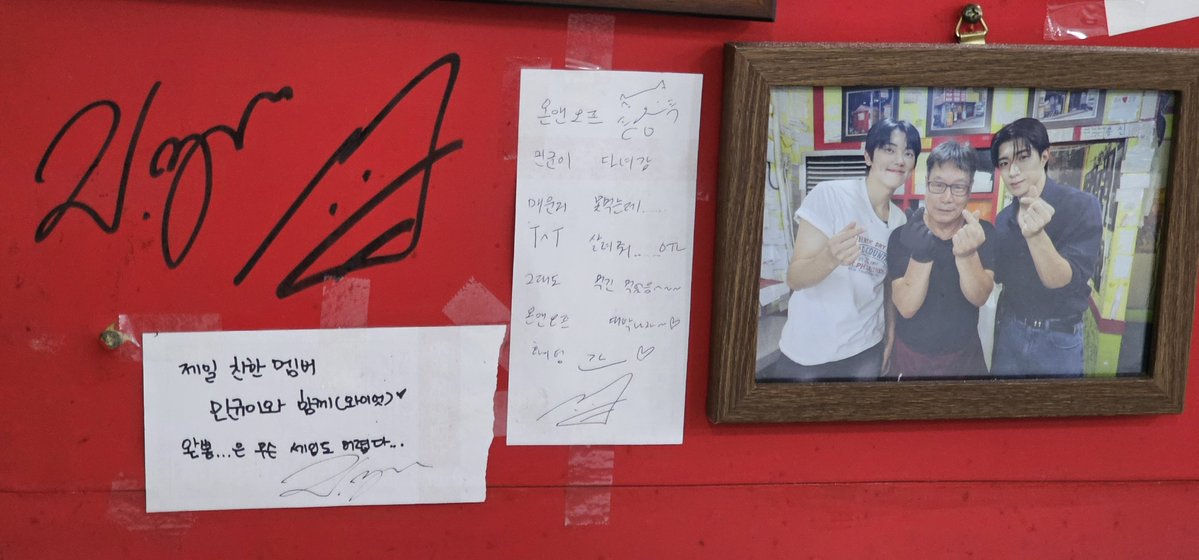 제일 친한 멤버
민균이와 함께(와이엇)♥
완뽕...은 무슨 세입도 어렵다...
온앤오프
민균이 다녀감
매운거 못먹는데......
T^T 살려줘...... OTL
그래도 먹긴 먹었음~~~
온앤오프 대박나자~♡